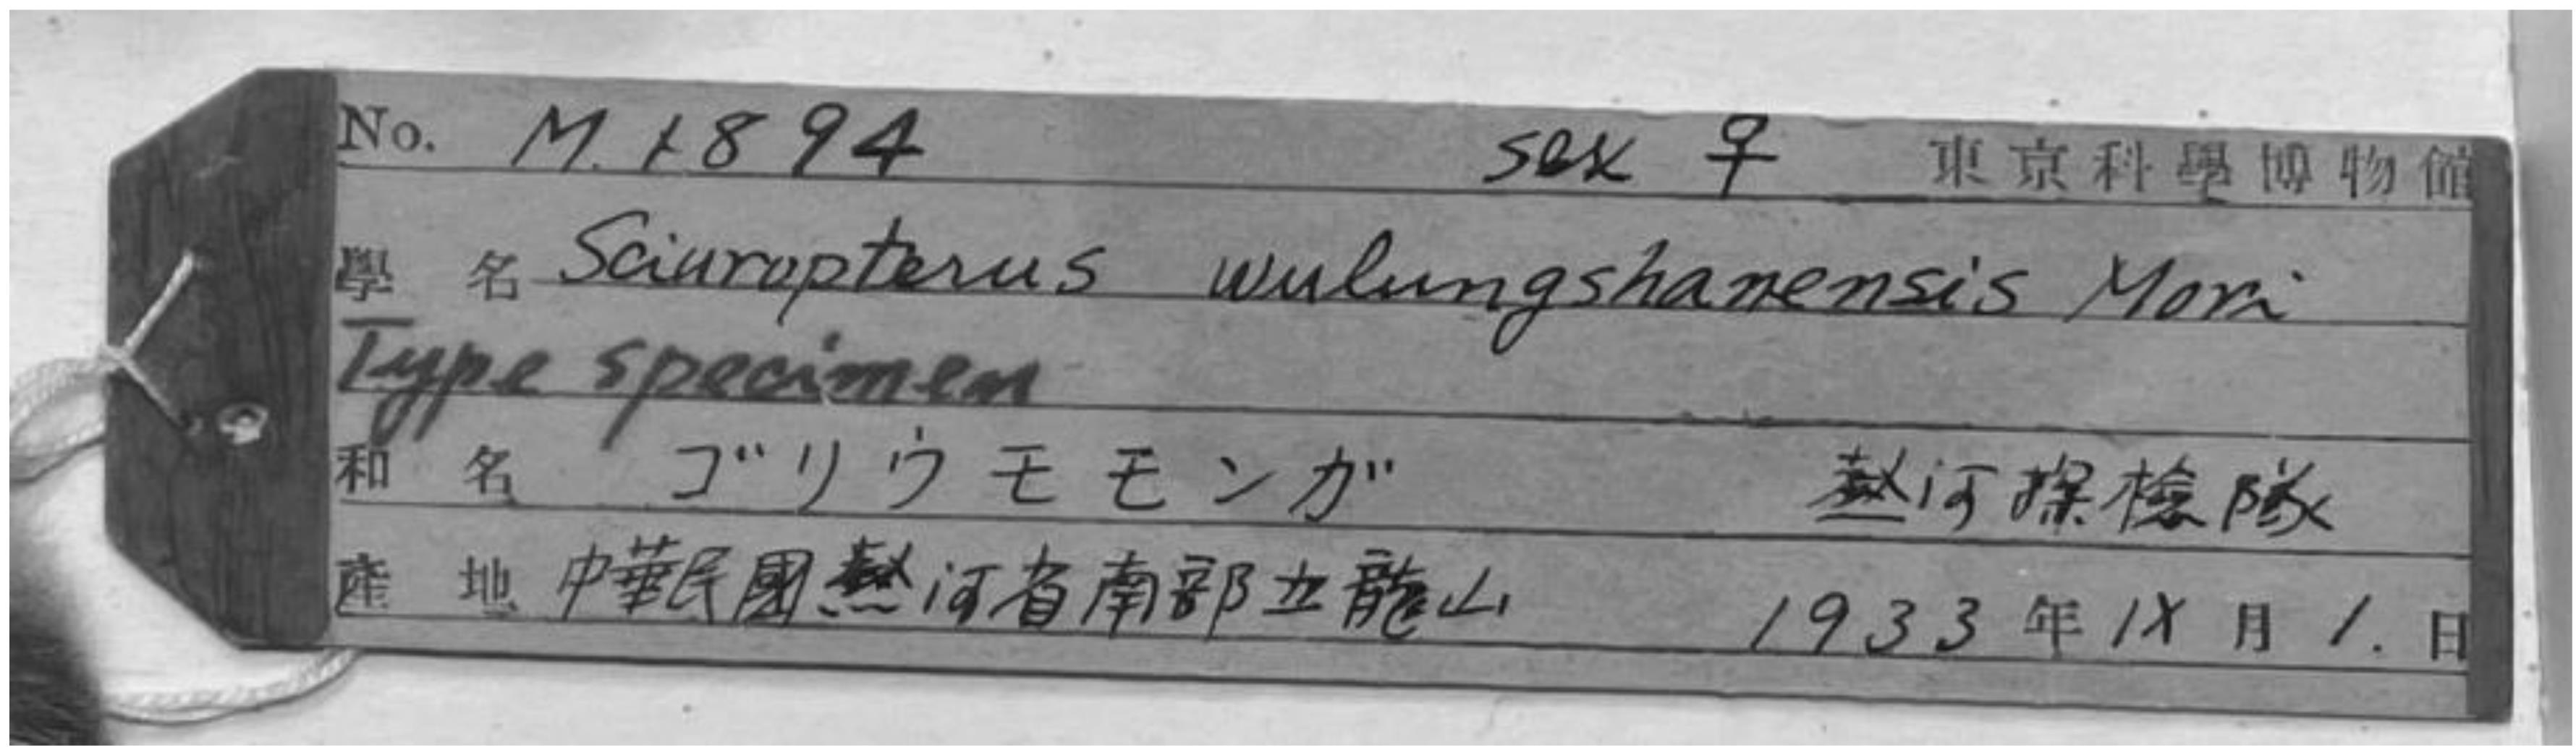 No. M. 1894 sex ♀ 東京科學博物館
學名 Sciuropterus wulungshanensis Mori
Type specimen
和名 ゴリウモモンガ 熱河探檢隊
産地 中華民國熱河省南部五龍山 1933年IX月1.日